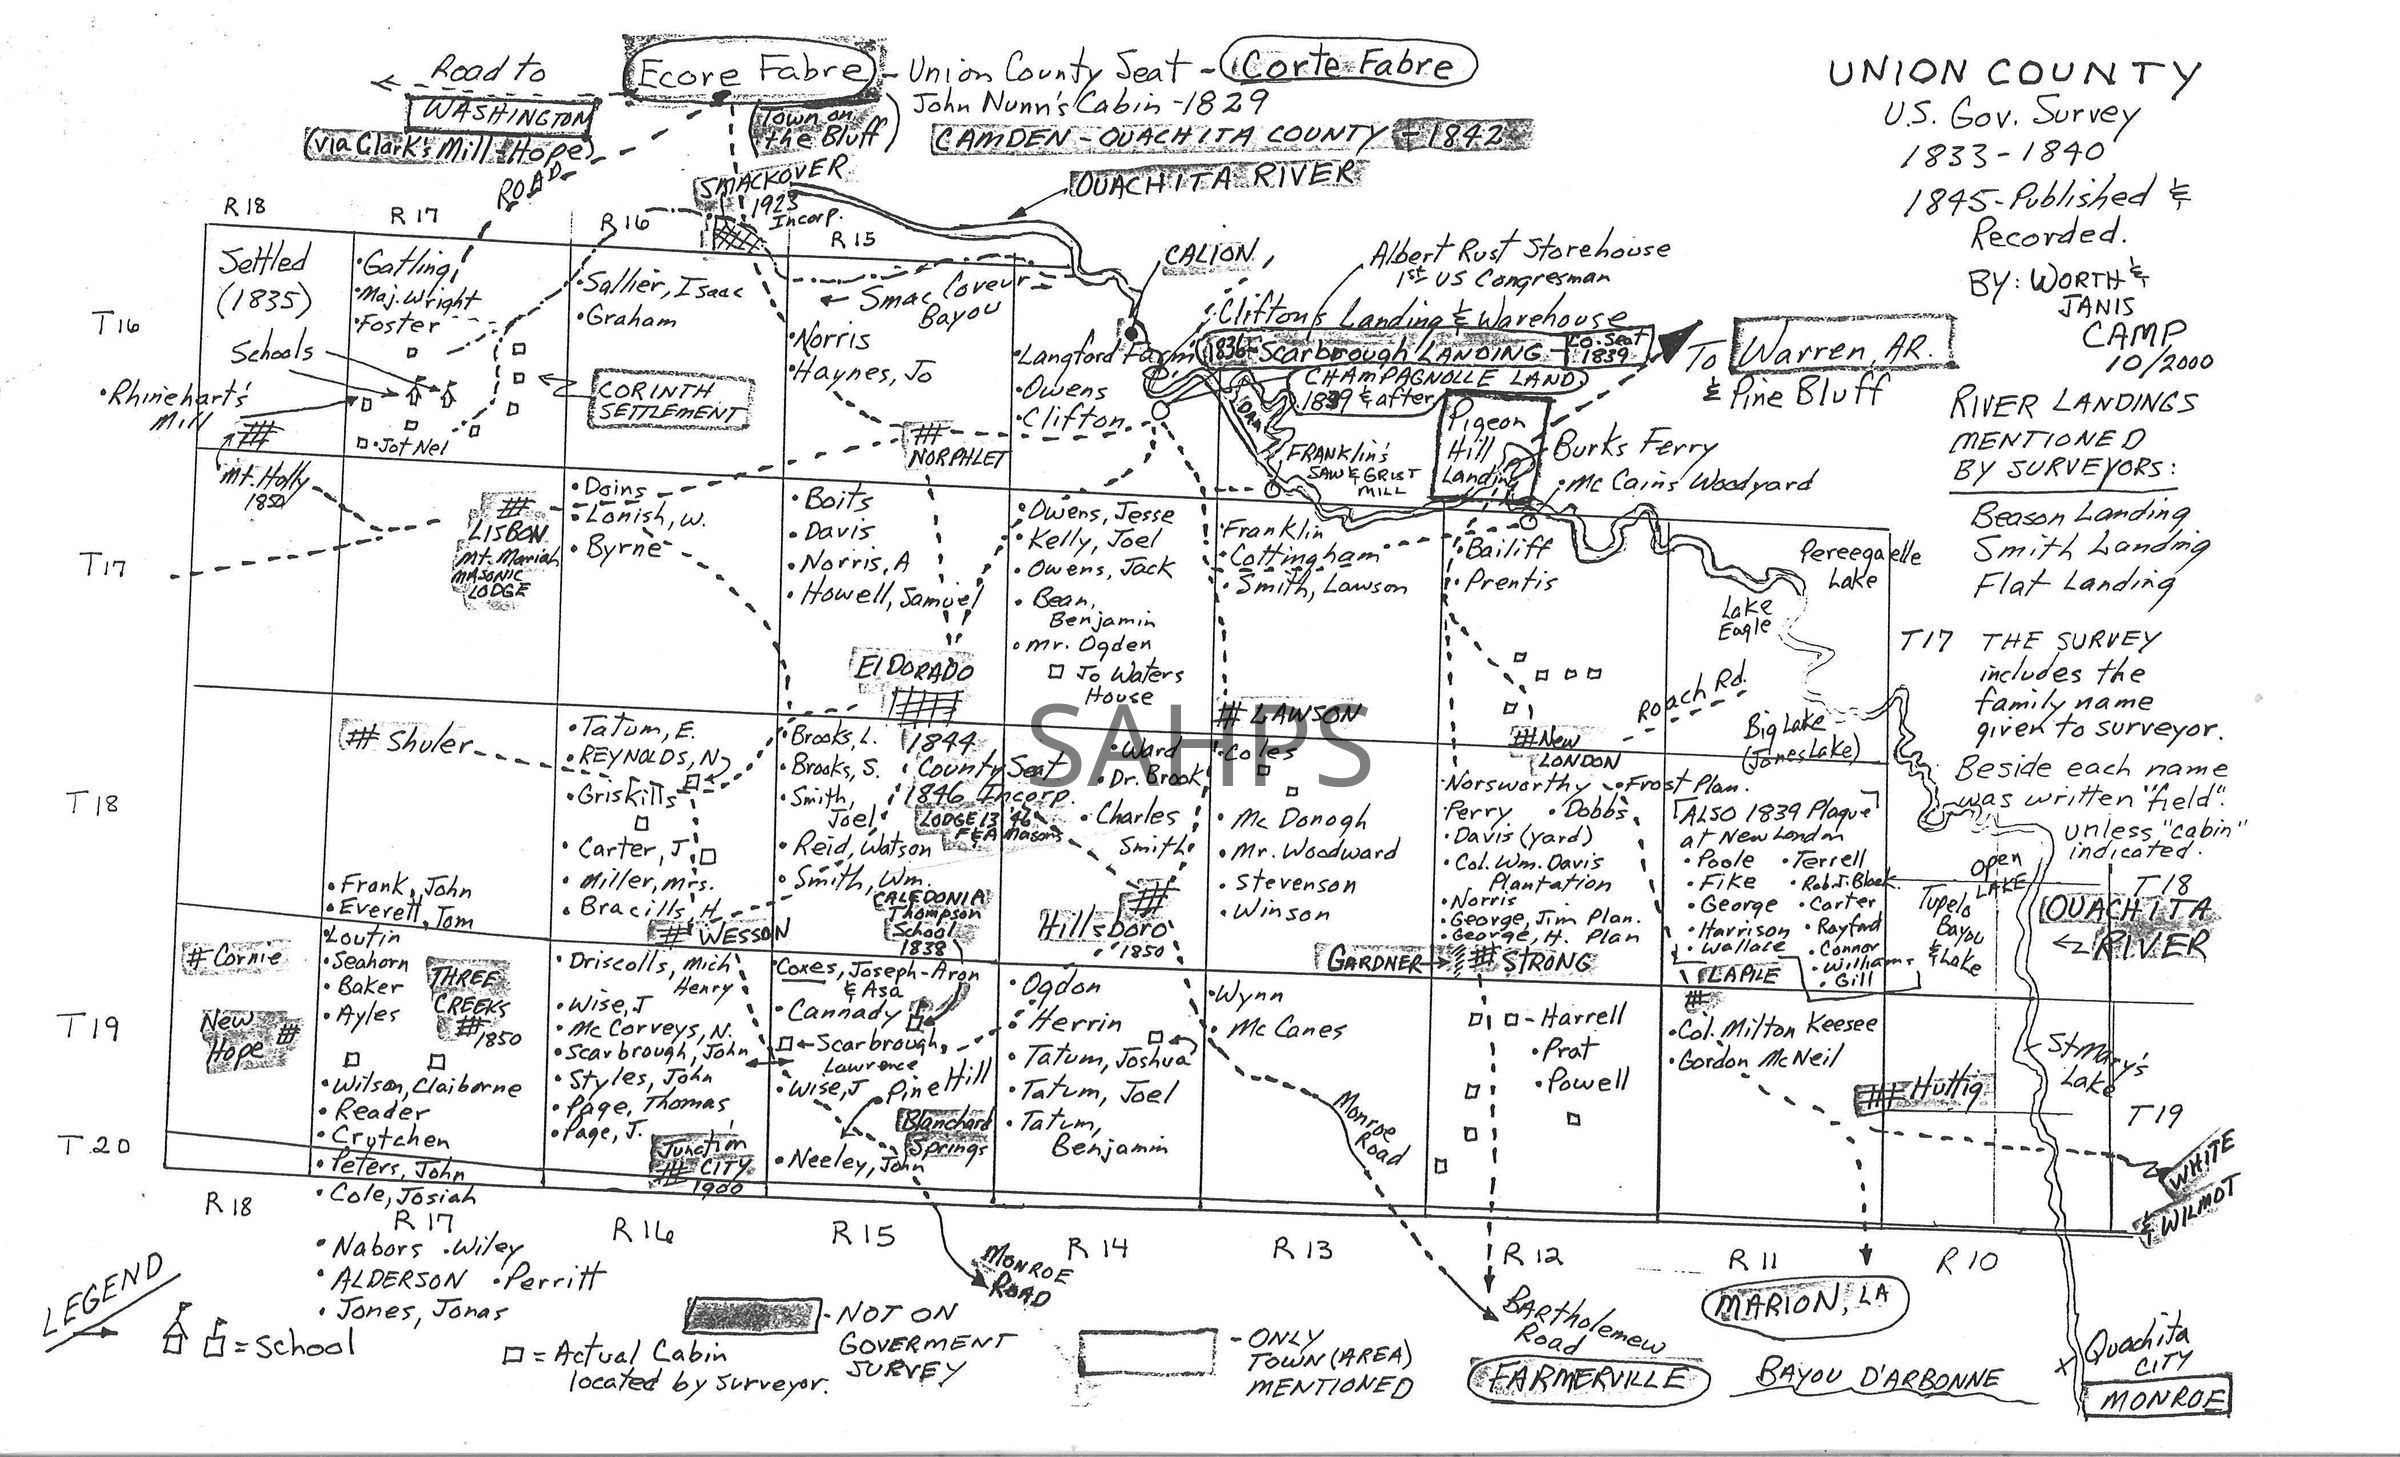 Road to
WASHINGTON
(via Clark's Mill-Hope)
ROAD
Ecore Fabre - Union County Seat - Corte Fabre
(Town on the Bluff)
John Nunn's Cabin - 1829
CAMDEN - OUACHITA COUNTY - 1842
SMACKOVER
1923
Incorp.
OUACHITA RIVER
UNION COUNTY
U.S. Gov. Survey
1833-1840
1845-Published &
Recorded.
BY: WORTH &
JANIS
CAMP
10/2000
RIVER LANDINGS
MENTIONED
BY SURVEYORS:
Beason Landing
Smith Landing
Flat Landing
T17 THE SURVEY
includes the
family name
given to surveyor.
Beside each name
was written "field".
unless "cabin"
indicated.
R18
R17
R16
R15
T16
Settled
(1835)
Schools
• Rhinehart's
Mill
Mt. Holly
1850
• Gatling
• Maj. Wright
• Foster
• Jot Nel
CORINTH
SETTLEMENT
• Sallier, Isaac
• Graham
← Smac Coveur
Bayou
• Norris
• Haynes, Jo
NORPHLET
• Langford Farm
• Owens
• Clifton
CALION
Albert Rust Storehouse
1st US Congresman
Clifton's Landing & Warehouse
1836 - Scarbrough LANDING - Co. Seat
1839
CHAMPAGNOLLE LAND
1839 & after
Pigeon
Hill
Landing
FRANKlin's
SAW & GRIST
MILL
Burks Ferry
• McCains Woodyard
To Warren, AR.
& Pine Bluff
T17
LISBON
Mt. Moriah
MASONIC
LODGE
• Doins
• Lonish, W.
• Byrne
• Boits
• Davis
• Norris, A
• Howell, Samuel
ElDORADO
• Owens, Jesse
• Kelly, Joel
• Owens, Jack
• Bean,
Benjamin
• Mr. Ogden
Jo Waters
House
• Franklin
• Cottingham
• Smith, Lawson
LAWSON
• Bailiff
• Prentis
Pereegaelle
Lake
Lake
Eagle
Roach Rd.
Big Lake
(Jones Lake)
New
LONDON
SAHPS
T18
Shuler
• Frank, John
• Everett, Tom
• Tatum, E.
• REYNOLDS, N
• Griskills
• Carter, J.
• Miller, Mrs.
• Bracills, H
WESSON
• Brooks, L.
• Brooks, S.
• Smith,
Joel
• Reid, Watson
• Smith, Wm.
1844
County Seat
1846 Incorp.
LODGE 13 '46
F&A Masons
CALEDONIA
Thompson
School
1838
• Ward
• Dr. Brook
• Charles
Smith
Hillsboro
1850
• Coles
• McDonogh
• Mr. Woodward
• Stevenson
• Winson
GARDNER
STRONG
• Norsworthy
• Frost Plan.
Perry
• Dobbs
• Davis (yard)
• Col. Wm. Davis
Plantation
• Norris
• George, Jim Plan.
• George, H. Plan
[ALSO 1839 Plaque]
at New London
• Poole
• Terrell
• Fike
• Rob. J. Black
• George
• Carter
• Harrison
• Rayford
• Wallace
• Connor
• Williams
• Gill
LAPILE
Open
LAKE
Tupelo
Bayou
& Lake
T18
OUACHITA
← RIVER
T19
Cornie
New
Hope
Loutin
• Seahorn
• Baker
• Ayles
THREE
CREEKS
1850
• Wilson, Claiborne
• Reader
• Crutchen
• Driscolls, Mich
Henry
• Wise, J
• McCorveys, N.
• Scarbrough, John
• Styles, John
• Page, Thomas
• Page, J.
Junction
CITY
1900
Coxes, Joseph-Aron
& Asa
• Cannady
← Scarbrough,
Lawrence
• Wise, J
Pine Hill
Blanchard
Springs
• Neeley, John
• Ogdon
• Herrin
• Tatum, Joshua
• Tatum, Joel
• Tatum,
Benjamin
• Wynn
• McCanes
Monroe
Road
• Harrell
• Prat
• Powell
• Col. Milton Keesee
• Gordon McNeil
Huttig
St Mary's
Lake
T19
WHITE
& WILMOT
T20
• Peters, John
• Cole, Josiah
R18
R17
R16
R15
R14
R13
R12
R11
R10
• Nabors
• Wiley
• ALDERSON
• Perritt
• Jones, Jonas
MONROE
ROAD
BARTholemew
Road
FARMERVILLE
MARION, LA
BAYOU D'ARBONNE
Ouachita
CITY
MONROE
LEGEND
= School
= Actual Cabin
located by surveyor.
- NOT ON
GOVERMENT
SURVEY
- ONLY
TOWN (AREA)
MENTIONED